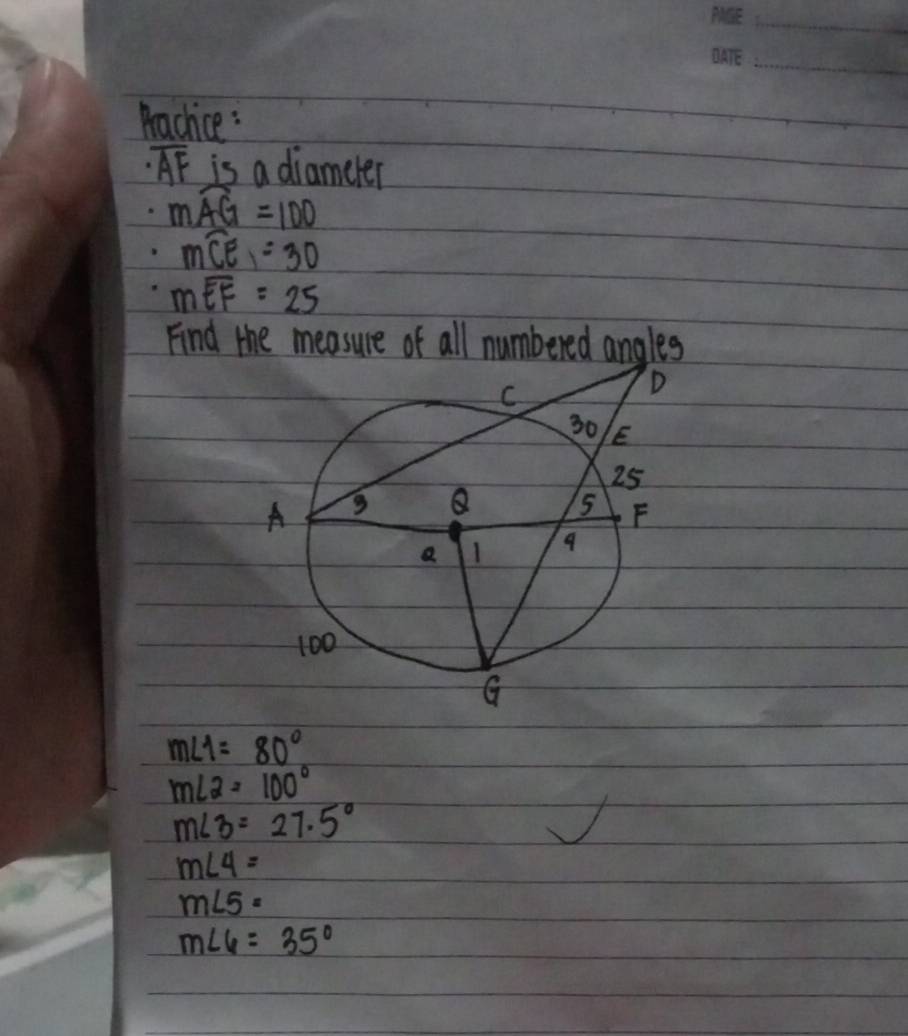 PAGE :
DATE :
Prachice:
· AF is a diameter
· mAG = 100
· mCE = 30
· mEF = 25
Find the measure of all numbered angles
D
C
30 E
25
A 3 Q 5 F
2 1 4
100
G
m∠1= 80°
m∠2= 100°
m∠3= 27.5°
m∠4=
m∠5=
m∠6= 35°